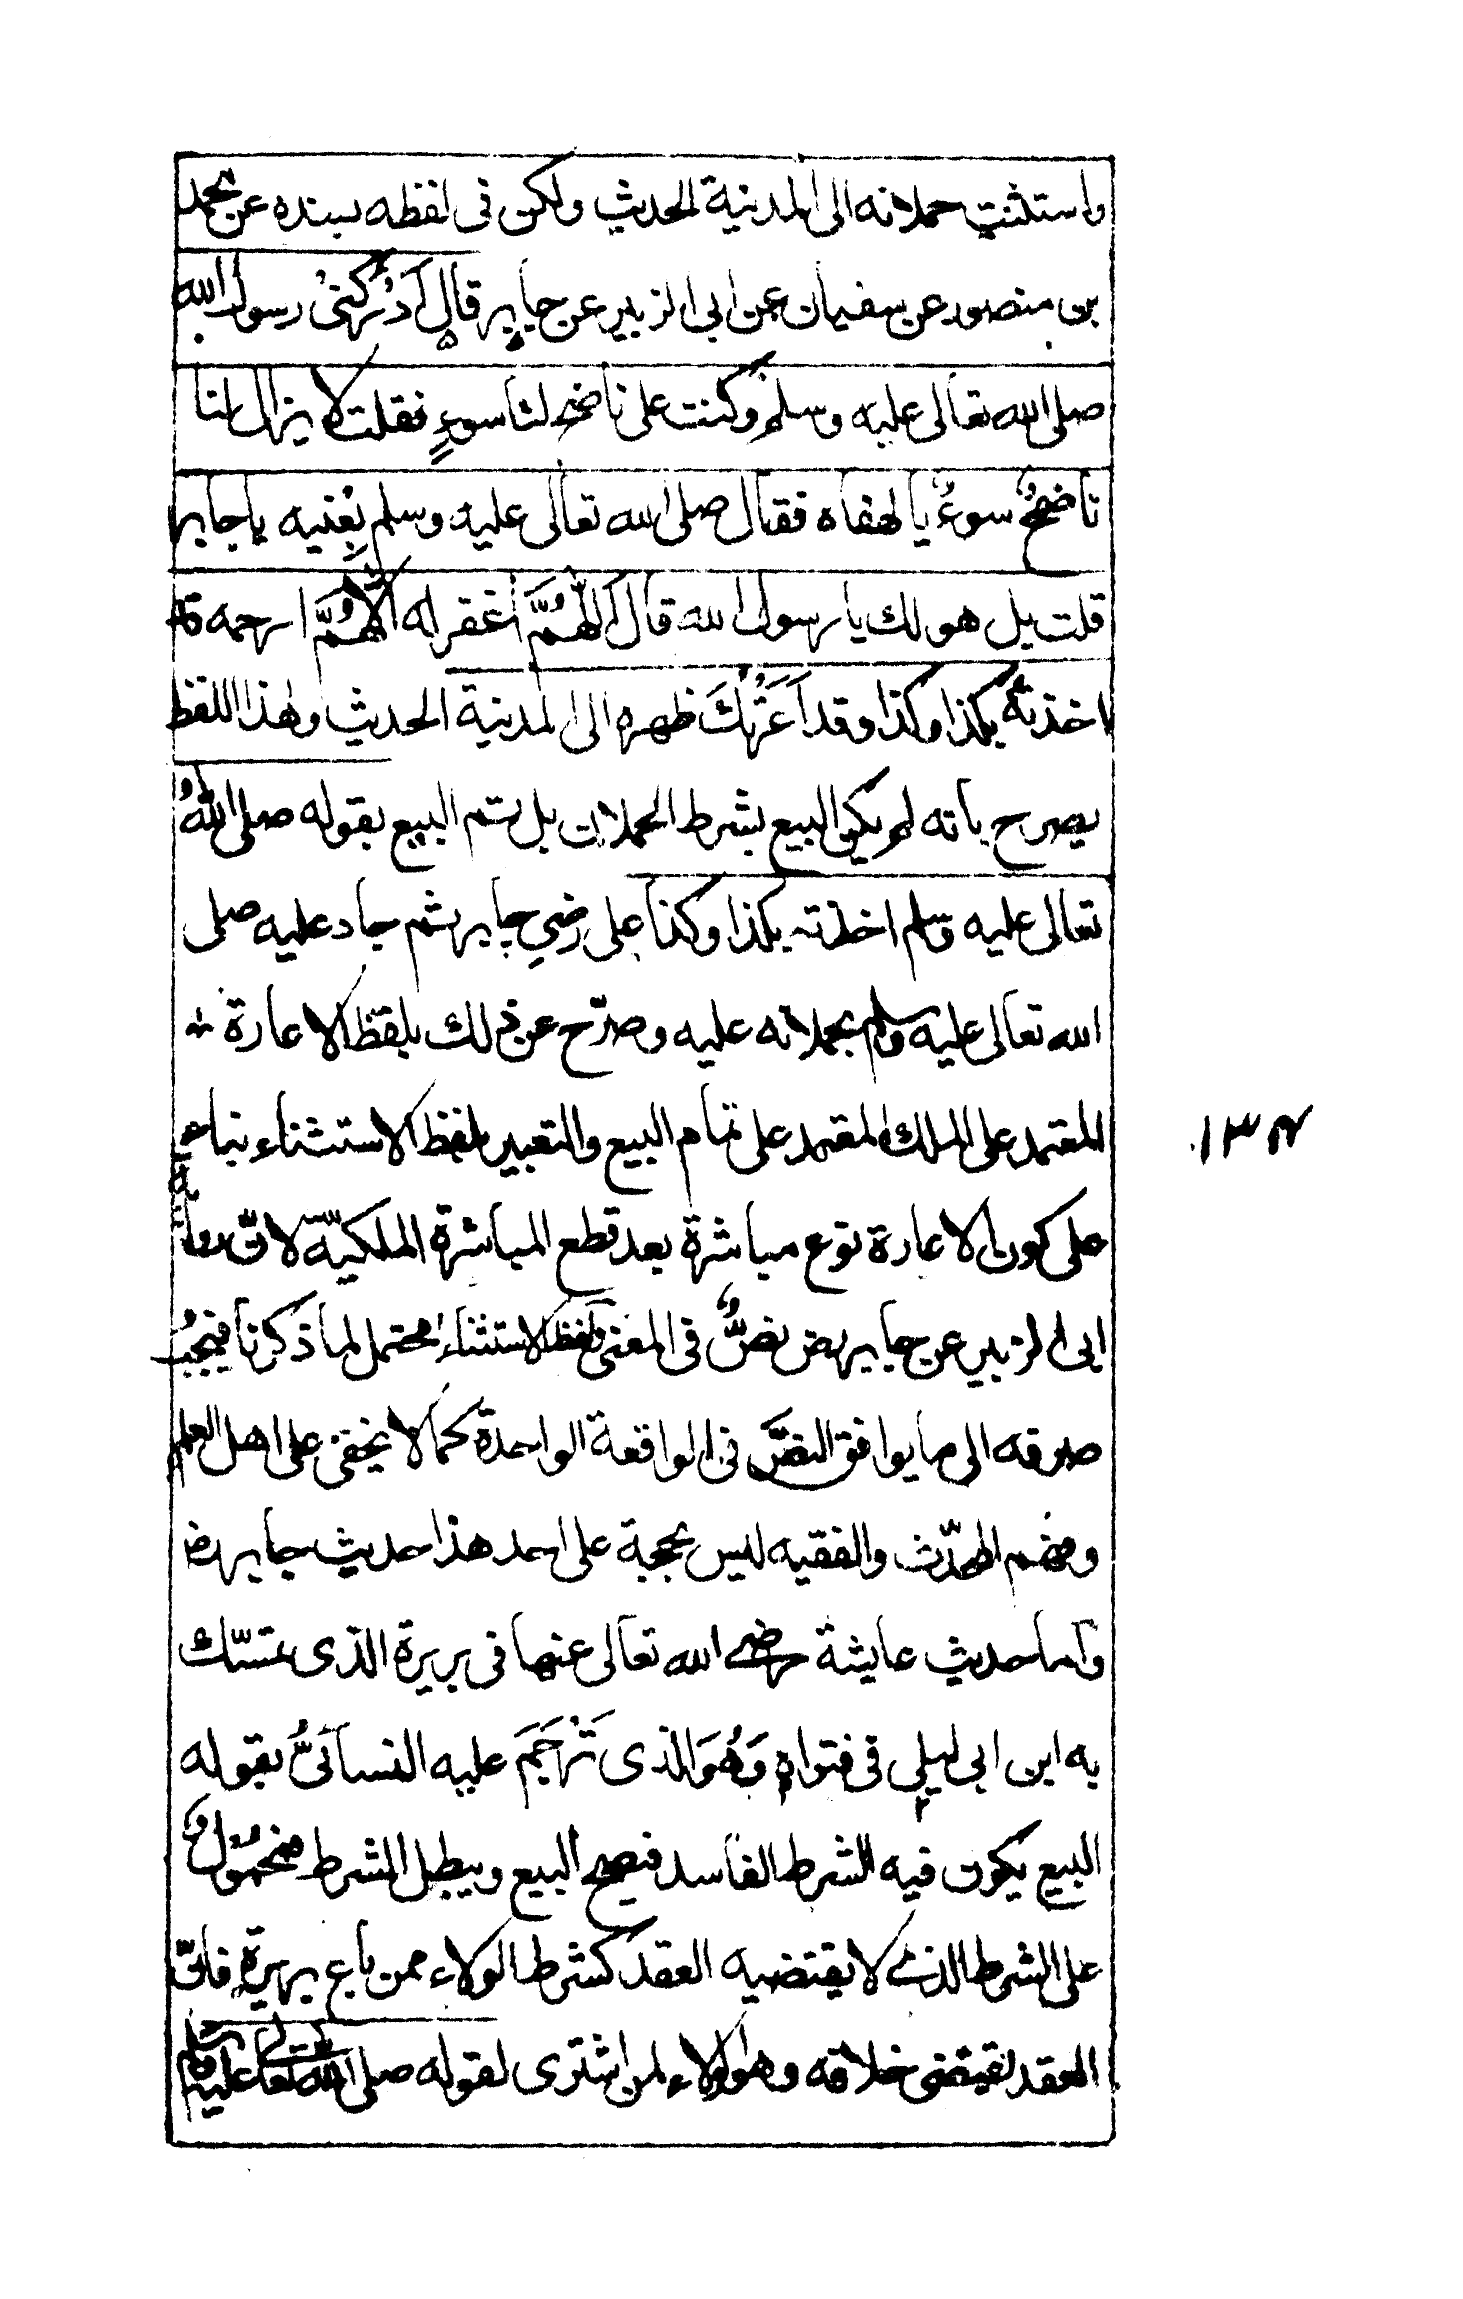 واستثنيت حملانه الى المدينة الحديث ولكن فى لفظه بسنده عن محمد
بن منصور عن سفيان عن ابى الزبير عن جابر قال أَدْرَكَنِىْ رسول الله
صلى الله تعالى عليه وسلم وكنت على ناضح لنا سوءٍ فقلت لا يزال لنا
ناضحُ سوءٍ يا لهفاه فقال صلى الله تعالى عليه وسلم بِعْنيه يا جابر
قلت بل هو لك يا رسول الله قال اَللّٰهُمَّ اغفر له اَللّٰهُمَّ ارحمه قد
اخذته بكذا وكذا وقد اَعَرْتُكَ ظهره الى المدينة الحديث ولهذا اللفظ
يصرح بانه لم يكن البيع بشرط الحملان بل تم البيع بقوله صلى اللهُ
تعالى عليه وسلم اخذته بكذا وكذا على رضىِ جابر ثم جاد عليه صلى
الله تعالى عليه وسلم بحملانه عليه وصرّح عن ذلك بلفظ الاعارة
المعتمد على الملك المعتمد على تمام البيع والتعبير بلفظ الاستثناء بناء
على كون الاعارة نوع مباشرة بعد قطع المباشرة الملكيّة لانّ رواية
ابى الزبير عن جابر رض نصٌّ فى المعنى ولفظ الاستثناء محتمل لما ذكرنا فيجبُ
صرفه الى ما يوافق النصَّ فى الواقعة الواحدة كما لا يخفى على اهل العلم
وفهم المحدّث والفقيه ليس بحجة على احد هذا حديث جابر رض
واما حديث عايشة رضى الله تعالى عنها فى بريرة الذى تمسّك
به ابن ابى ليلى فى فتواه وَهُوَ الذى تَرْجَمَ عليه النسائىُّ بقوله
البيع يكون فيه الشرط الفاسد فيصح البيع ويبطل الشرط فمحمُوْلٌ
على الشرط الذى لا يقتضيه العقد كشرط الولاء ممن باع بريرة فانّ
العقد يقتضى خلافه وهو الولاء لمن اشترى لقوله صلى الله تعالى عليه وسلم
١٣٤